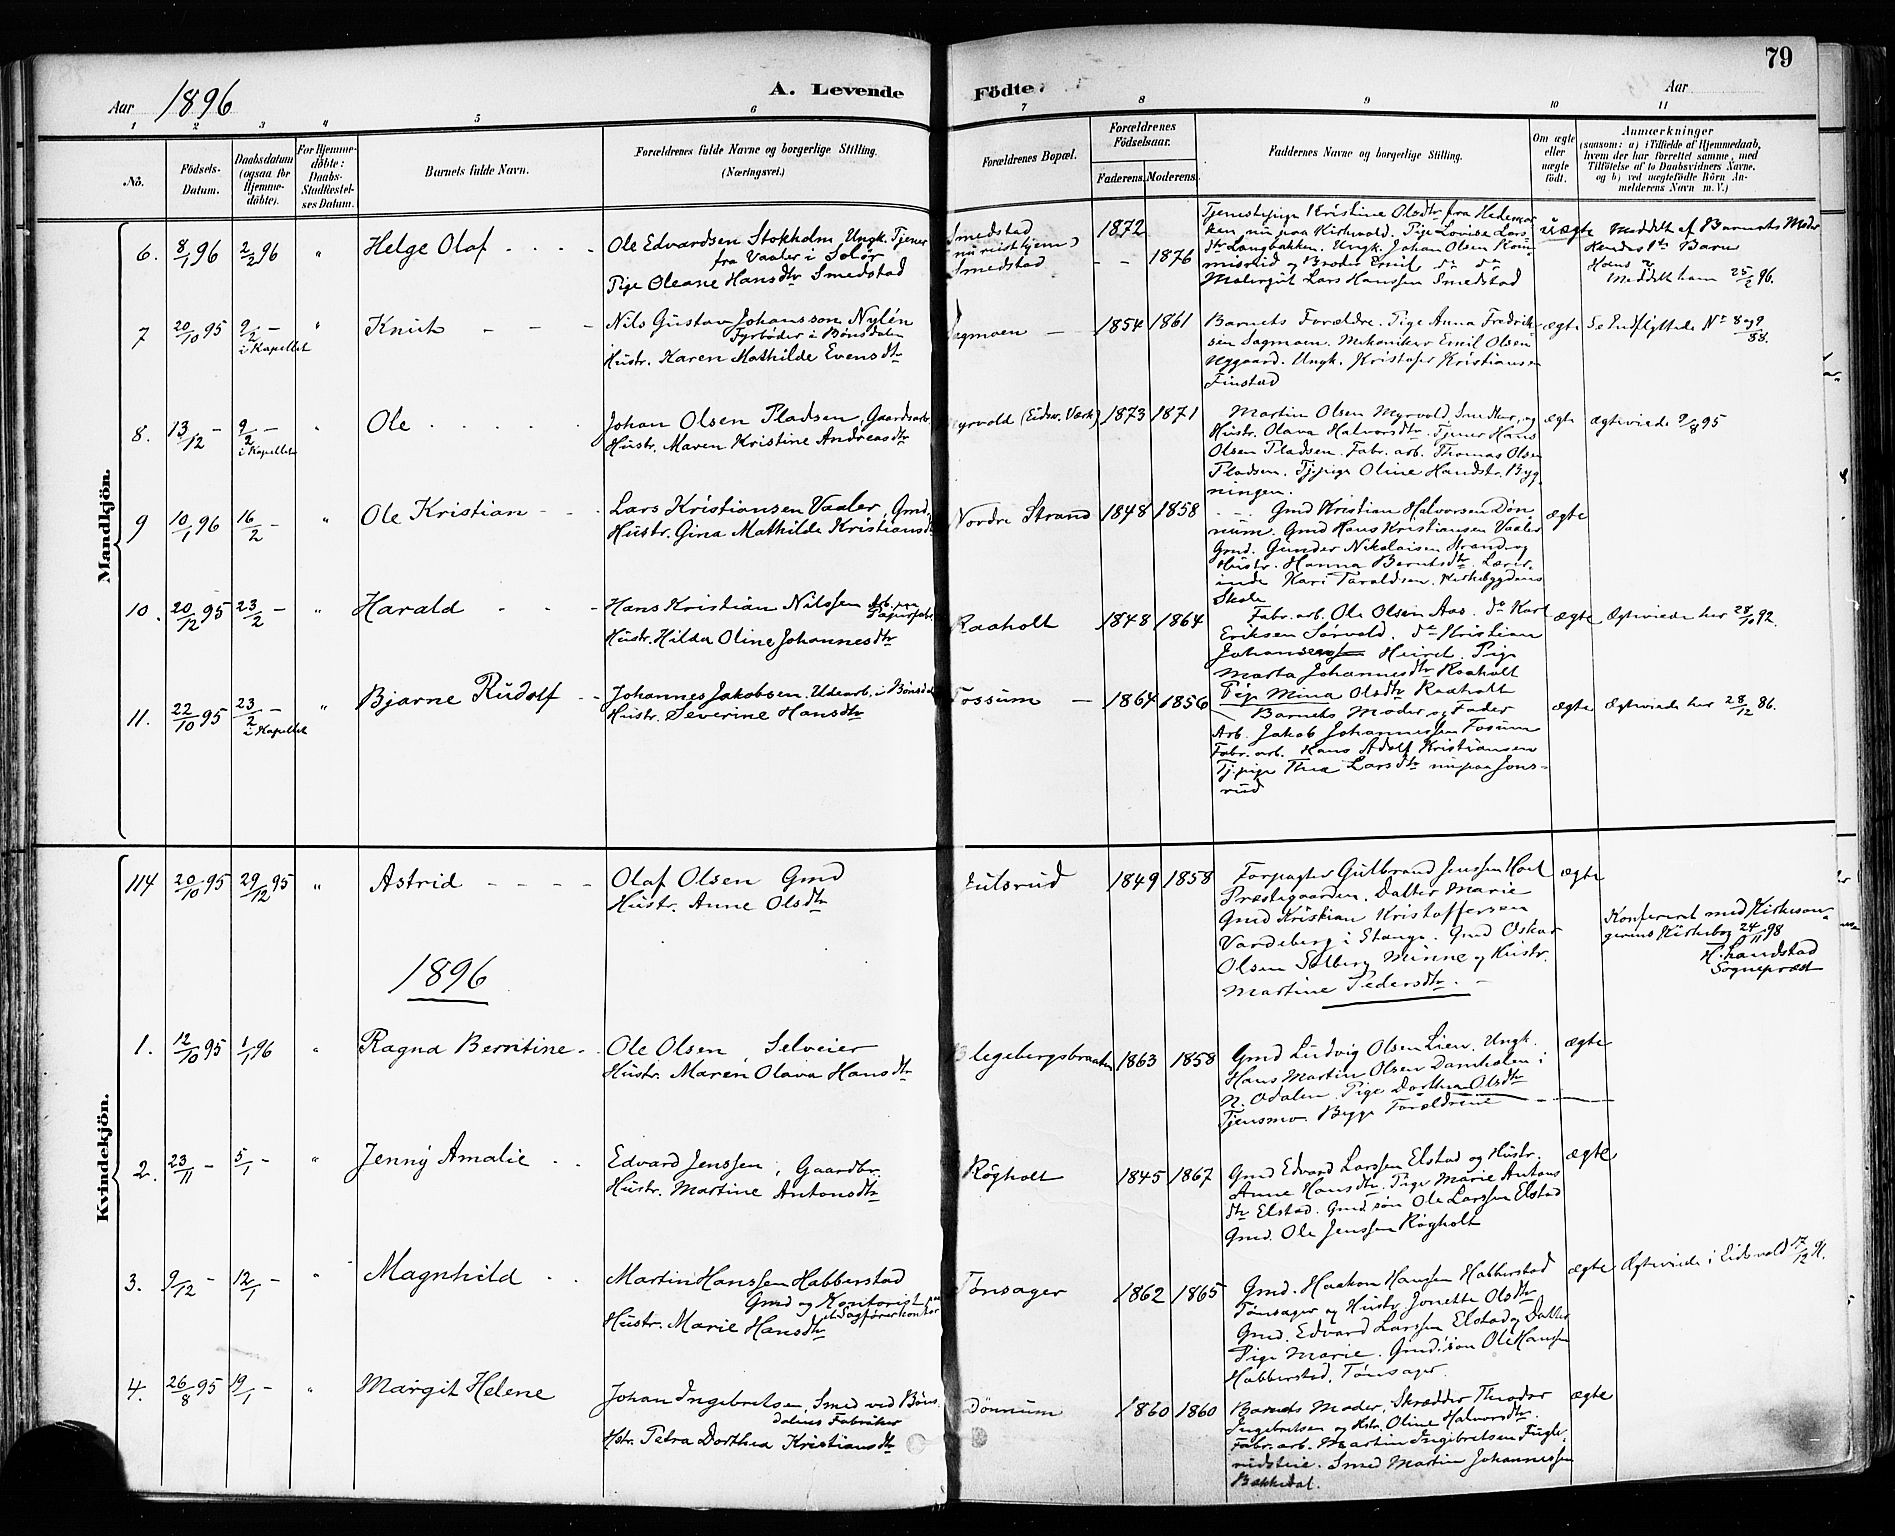 79
Aar 1896
A. Levende Födte.
Aar
1 2 3 4 5 6 7 8 9 10 11
No.
Födsels-Datum.
Daabsdatum (ogsaa for Hjemmedöbte).
For Hjemmedöbte: Daabs-Stadfæstelses Datum.
Barnets fulde Navn.
Forældrenes fulde Navne og borgerlige Stilling.
(Næringsvei.)
Forældrenes Bopæl.
Forældrenes Födselsaar.
Faderens. Moderens.
Faddernes Navne og borgerlige Stilling.
Om ægte eller uægte födt.
Anmærkninger
(saasom: a) i Tilfælde af Hjemmedaab, hvem der har forrettet samme, med Tilföielse af to Daabsvidners Navne, og b) ved uægtefödte Börn Anmelderens Navn m. V.)
Mandkjön.
6. 8/1 96 2/2 96 " Helge Olaf
Ole Edvardsen Stokholm, Ungk. Tjener
fra Vaaler i Solör
Pige Oleane Hansdtr Smedstad
Smedstad
Smedstad
1872
1876
Tjenestepige Kristine Olsdtr fra Hedemar
ken, nu paa Kirkvold. Pige Lovise Lars
dtr Langbakken. Ungk. Johan Olsen
og Broder Emil do do
Malergut Lars Hanssen Smedstad
uægte
Meddelt af Barnets Moder
Hendes 1ste Barn
Hans 2
Meddelt ham 25/2 96.
7 20/10 95 9/2 - " Knut
i Kapellet
Nils Gustav Johansson Nylén
Fyrböder i Bönsdalen
Hustr. Karen Mathilde Evensdtr
Sagmoen
1854 1861
Barnets Forældre. Pige Anna Fredrik-
sen Sagmoen. Mekaniker Emil Olsen
Nygaard. Ungk. Kristofer Kristiansen
Finstad
ægte
Se Indflyttede No 8 og 9
88.
8. 13/12 - 9/2 - " Ole
i Kapellet
Johan Olsen Pladsen, Gaardsarb.
Hustr. Maren Kristine Andreasdtr
Myrvold (Eidsv. Værk)
1873 1871
Martin Olsen Myrvold, Smed, og
Hustr. Olava Halvorsdtr. Tjener Hans
Olsen Pladsen. Fabr. arb. Thomas Olsen
Pladsen. Tjpige Oline Handstr. Byg
ningen.
ægte
Ægteviede 9/8 95
9 10/1 96 16/2 - " Ole Kristian
Lars Kristiansen Vaaler, Gmd.
Hustr. Gina Mathilde Kristiansdtr
Nordre Strand
1848 1858
Gmd Kristian Halvorsen Dön
num. Gmd Hans Kristiansen Vaaler
Gmd. Gunder Nikolaisen Strand og
Hustr. Hanna Berntsdtr. Lærer-
inde Kari Taraldsen, Kirkebygdens
Skole
ægte
10. 20/12 95 23/2 - " Harald
Hans Kristian Nilssen Arb. paa
Papirfabr.
Hustr. Hilda Oline Johannesdtr
Raaholt
1848 1864
Fabr. arb. Ole Olsen Aas. do Karl
Eriksen Sörvold. do Kristian
Johansen Pige
Marta Johannesdtr Raaholt
Pige Mina Olsdtr Raaholt
ægte
Ægteviede her 28/10 92.
11. 22/10 95 23/2 - " Bjarne Rudolf
i Kapellet
Johannes Jakobsen. Udearb. i Bönsdal
Hustr. Severine Hansdtr
Fossum
1864 1856
Barnets Moder og Fader
Arb. Jakob Johannessen Fosum
Fabr. arb. Hans Adolf Kristiansen
Tjpige Thea Larsdtr nu paa Jons-
rud
ægte
Ægteviede her 28/12 86.
Kvindekjön.
114 20/10 95 29/12 95 " Astrid
Olaf Olsen Gmd
Hustr. Anne Olsdtr
Julsrud
1849 1858
Forpagter Gulbrand Jenssen Hoel
Præstegaarden. Datter Marie
Gmd Kristian Kristoffersen
Vardeberg i Stange. Gmd Oskar
Olsen Solberg Minne og Hustr.
Martine Pedersdtr.
ægte
Konfereret med Kirkesan-
gerens Kirkebog 24/11 98
H. Landstad
Sogneprest
1896
1. 12/10 95 1/1 96 " Ragna Berntine
Ole Olsen, Selveier
Hustr. Maren Olava Hansdtr
Blegebergsbraaten
1863 1858
Gmd Ludvig Olsen Lien. Ungk.
Hans Martin Olsen Damholen i
N. Odalen. Pige Dorthea Olsdtr
Tjensmo Begge Forældrene
ægte
2. 23/11 - 5/1 - " Jenny Amalie
Edvard Jenssen, Gaardbr.
Hustr. Martine Antonsdtr
Rögholt
1845 1867
Gmd Edvard Larssen Elstad og Hustr.
Anne Hansdtr. Pige Marie Antons
dtr Elstad. Gmdsön Ole Larssen Elstad
Gmd. Ole Jenssen Rögholt
ægte
3. 9/12 - 12/1 - " Magnhild
Martin Hanssen Habberstad
Gmd og Kontorist paa
et Sagförerkontor
Hustr. Marie Hansdtr
Tönsager
1862 1865
Gmd. Haakon Hanssen Habberstad
Tönsager og Hustr Jonette Olsdtr
Gmd. Edvard Larssen Elstad og Datter
Pige Marie. Gmdssön Ole Hanssen
Habberstad, Tönsager.
ægte
Ægteviede i Eidsvold 17/12 91.
4. 26/8 95 19/1 - " Margit Helene
Johan Ingebretsen, Smed ved Böns
dalens Fabriker
Hstr. Petra Dorthea Kristiansdtr
Dönnum
1860 1860
Barnets Moder, Skrædder Theodor
Ingebretsen og Hstr. Oline Halvorsdtr.
Fabr. arb. Martin Ingebretsen Fugle-
rudsteie. Smed Martin Johannessen
Bakkedal.
ægte